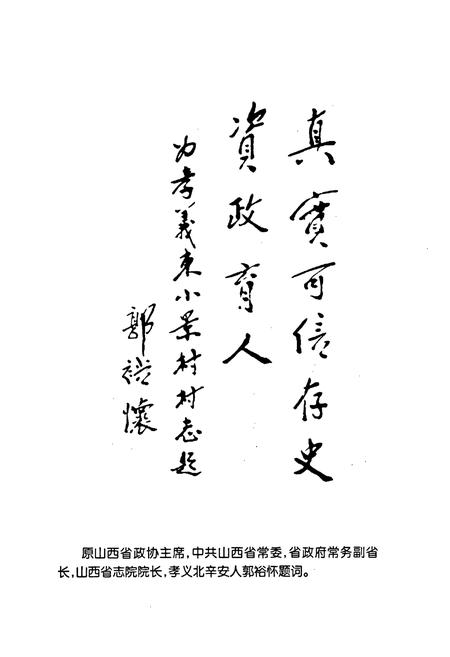 真實可信存史
資政育人
为孝義東小景村村志题
郭裕懷
原山西省政协主席,中共山西省常委,省政府常务副省
长,山西省志院院长,孝义北辛安人郭裕怀题词。